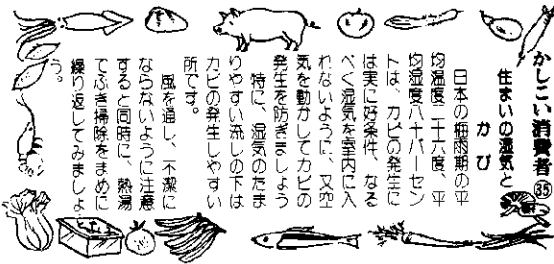 かしこい消費者㉟
住まいの湿気と
かび
日本の梅雨期の平
均温度二十六度、平
均湿度八十パーセン
トは、カビの発生に
は実に好条件、なる
べく湿気を室内に入
れないように、又空
気を動かしてカビの
発生を防ぎましょう
特に、湿気のたま
りやすい流しの下は
カビの発生しやすい
所です。
風を通し、不潔に
ならないように注意
すると同時に、熱湯
でふき掃除をまめに
繰り返してみましょ
う。